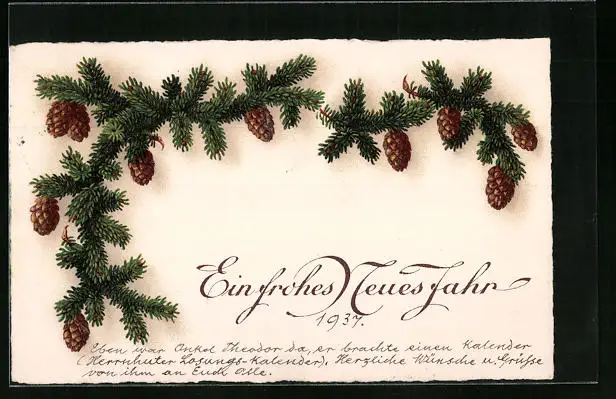 Ein frohes Neues Jahr
1937.
Eben war Onkel Theodor da, er brachte einen Kalender
(Herrnhuter Losungs-Kalender). Herzliche Wünsche u. Grüsse
von ihm an Euch Alle.